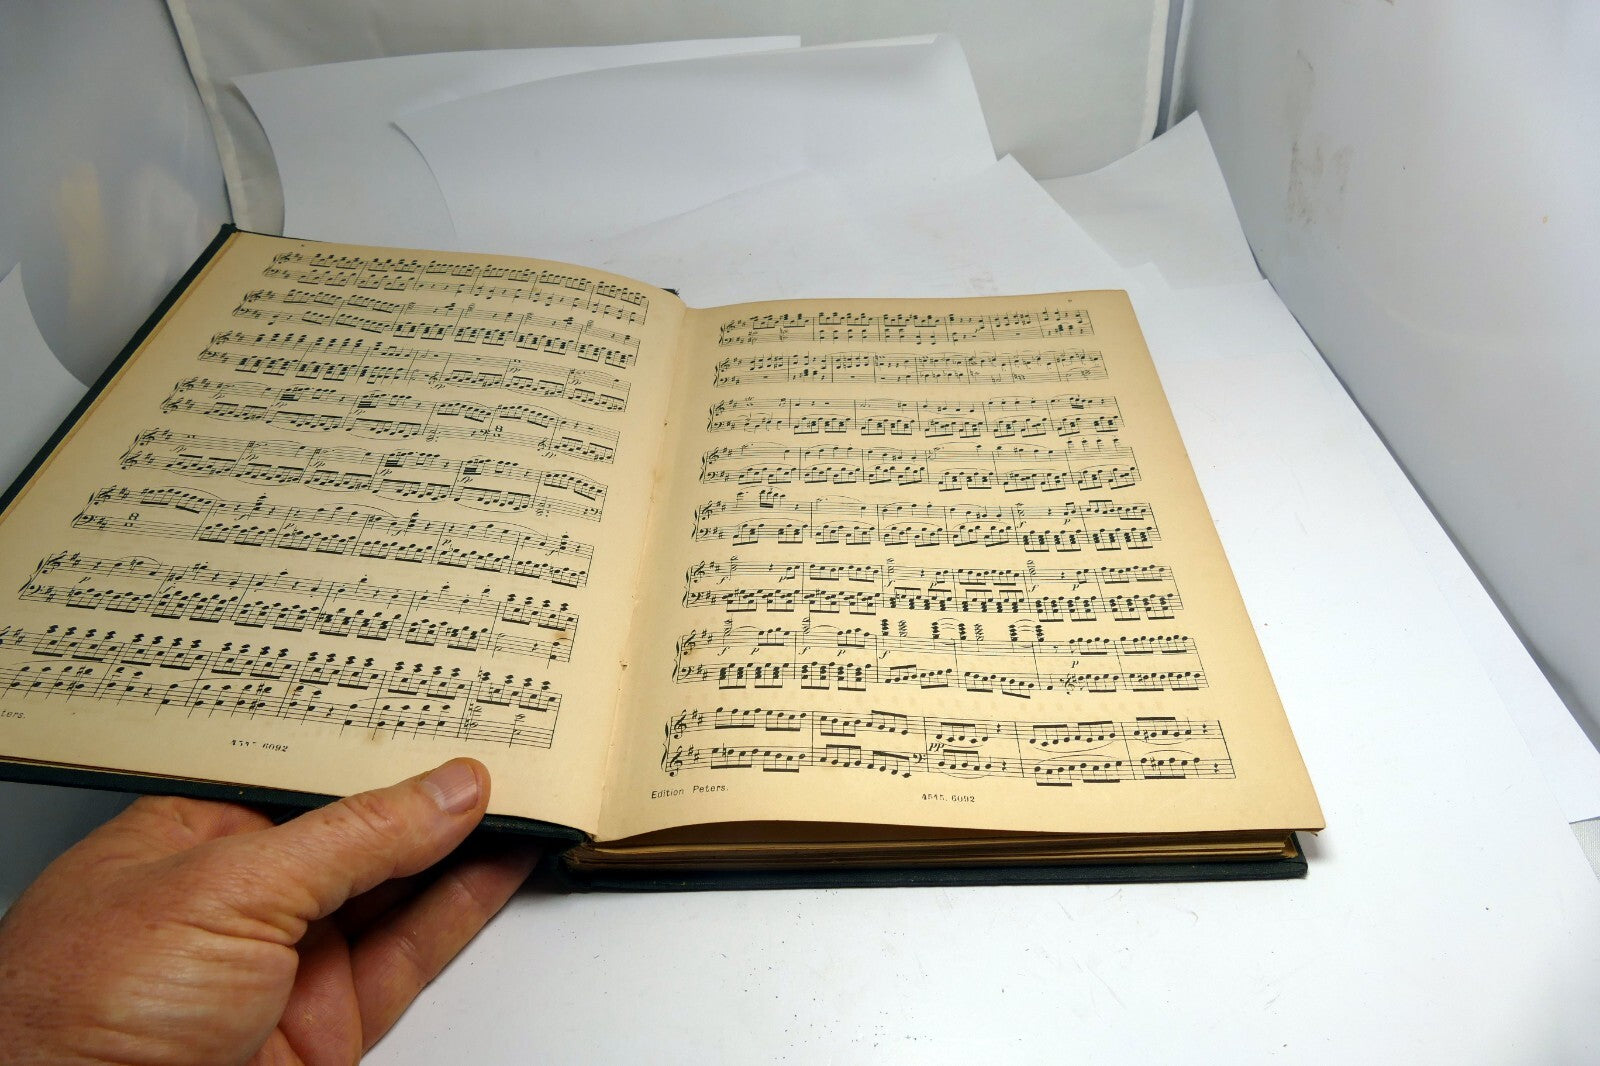 ters.
4545 6092
Edition Peters.
4545. 6092